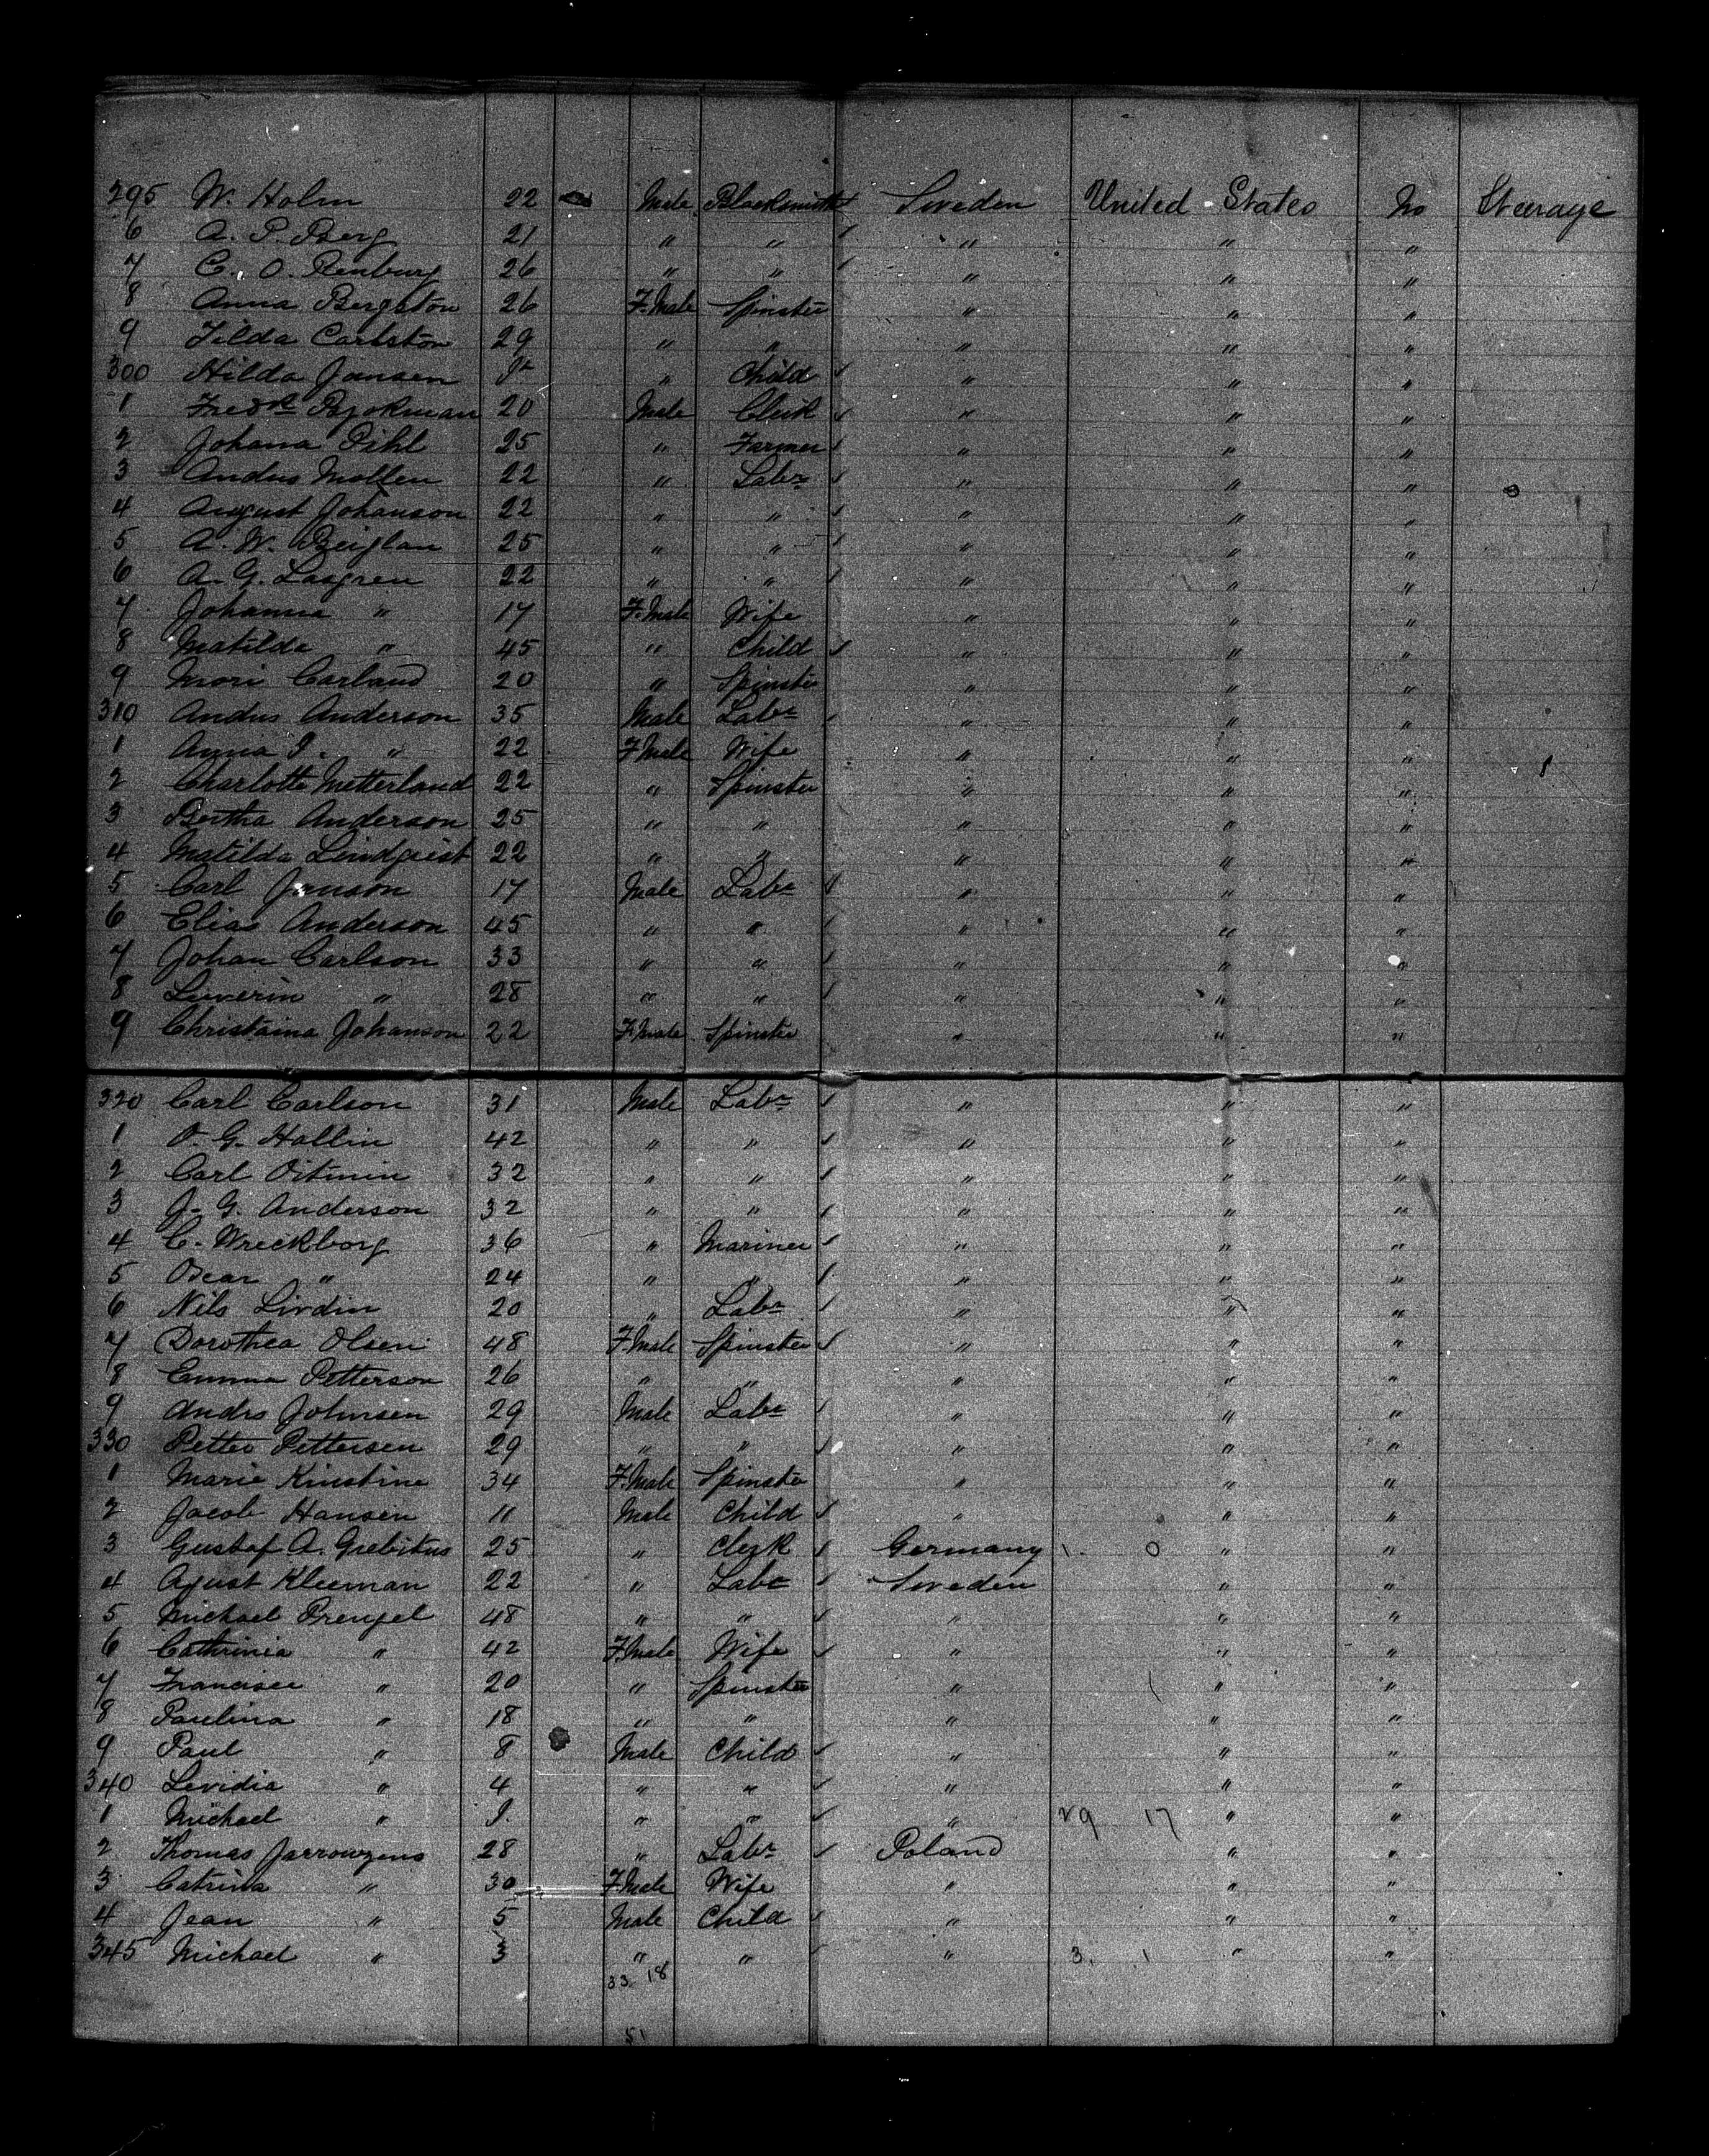 295 W. Holm 22 Male Blacksmith Sweden United States No Steerage
6 A. P. Berg 21 " " " " "
7 C. O. Renburg 26 " " " " "
8 Anna Bergston 26 F.Male Spinster " " "
9 Tilda Carlston 29 " " " " "
300 Hilda Jansen " Child " " "
1 Fredk Bjorkman 20 Male Clerk " " "
2 Johana Pihl 25 " Farmer " " "
3 Andus Mollen 22 " Labr " " "
4 August Johanson 22 " " " " "
5 A. W. 25 " " " " "
6 A. G. Lasgren 22 " " " " "
7 Johanna " 17 F.Male Wife " " "
8 Matilda " 45 " Child " " "
9 Mori Carland 20 " Spinster " " "
310 Andus Anderson 35 Male Labr " " "
1 Anna " 22 F.Male Wife " " "
2 Charlotte Metterland 22 " Spinster " " "
3 Bertha Anderson 25 " " " " "
4 Matilda Lindqvist 22 " " " " "
5 Carl Janson 17 Male Labr " " "
6 Elias Anderson 45 " " " " "
7 Johan Carlson 33 " " " " "
8 " 28 " " " " "
9 Christaina Johanson 22 F.Male Spinster " " "
320 Carl Carlson 31 Male Labr " " "
1 O. G. Hallin 42 " " " " "
2 Carl Oitmin 32 " " " " "
3 J. G. Anderson 32 " " " " "
4 C. Wreckborg 36 " Mariner " " "
5 Oscar " 24 " " " " "
6 Nils Lindin 20 " Labr " " "
7 Dorothea Olsen 48 F.Male Spinster " " "
8 Emma Petterson 26 " " " " "
9 Andrs Johnsen 29 Male Labr " " "
330 Petter Pettersen 29 " " " " "
1 Marie Kinstine 34 F.Male Spinster " " "
2 Jacob Hansen 11 Male Child " " "
3 Gustaf A. Grebitus 25 " Clerk Germany 1. 0 " "
4 Agust Kleeman 22 " Labr Sweden " "
5 Michael Prengel 48 " " " " "
6 Cathrinia " 42 F.Male Wife " " "
7 Francisce " 20 " Spinster " " "
8 Paulina " 18 " " " " "
9 Paul " 8 Male Child " " "
340 Levidia " 4 " " " " "
1 Michael " " " " 29 17 " "
2 Thomas Jarrowzens 28 " Labr Poland " "
3 Catrina " 30 F.Male Wife " " "
4 Jean " 5 Male Child " " "
345 Michael " 3 " " " 3. 1 " "
33 18
51